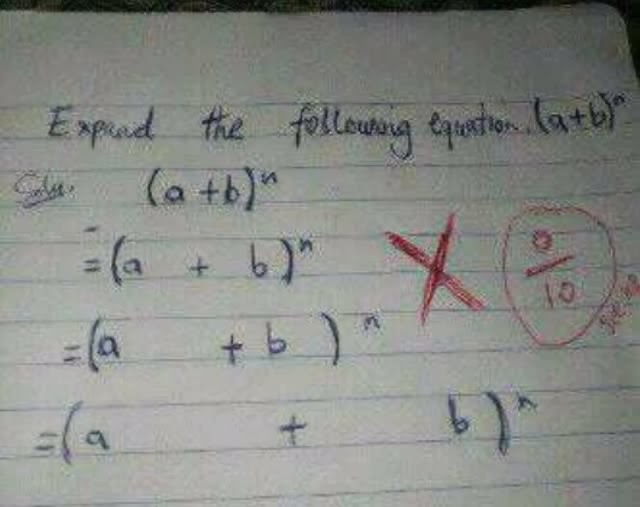 Expand the following equation. (a+b)ⁿ
Soln. (a+b)ⁿ
= (a + b)ⁿ
= (a + b)ⁿ
= (a + b)ⁿ
0/10